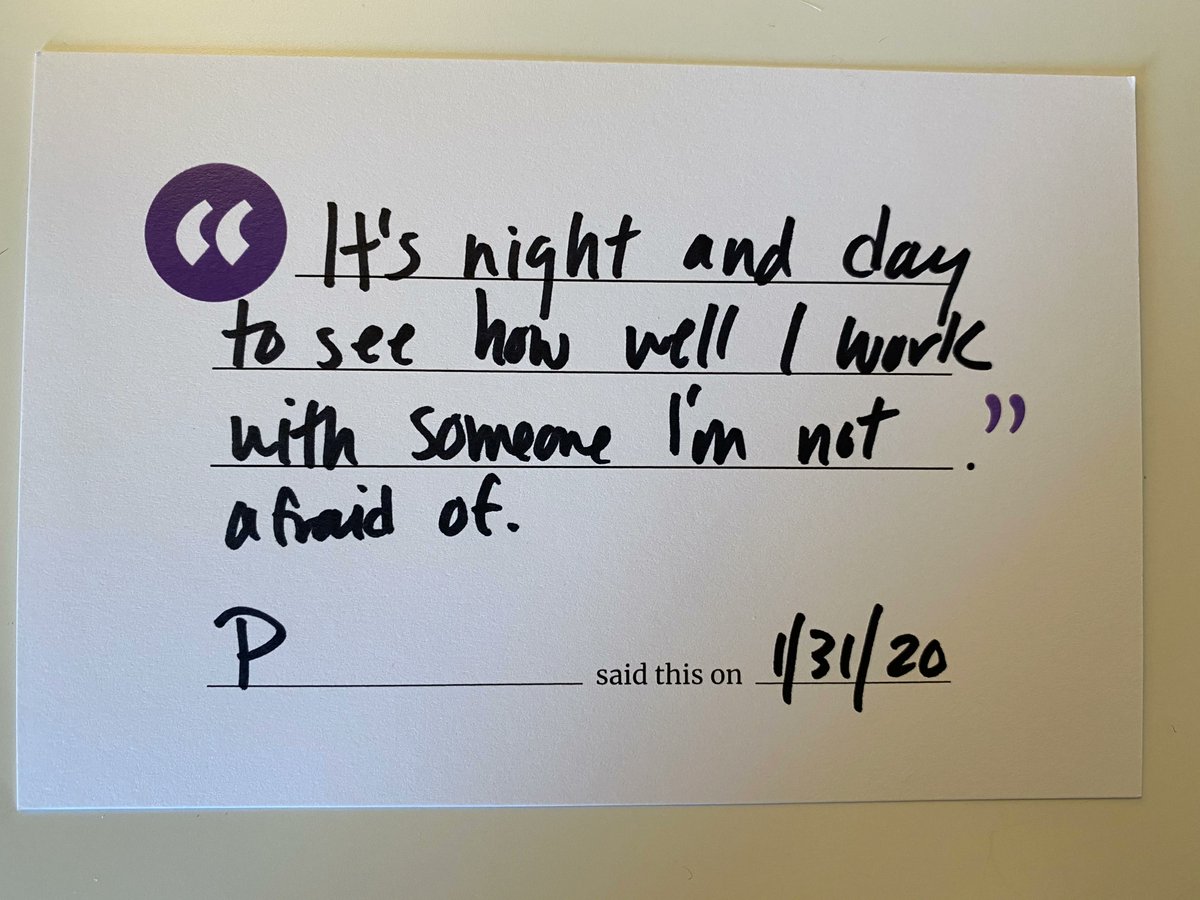 “ It's night and day
to see how well I work
with someone I'm not . ”
afraid of.
P said this on 1/31/20